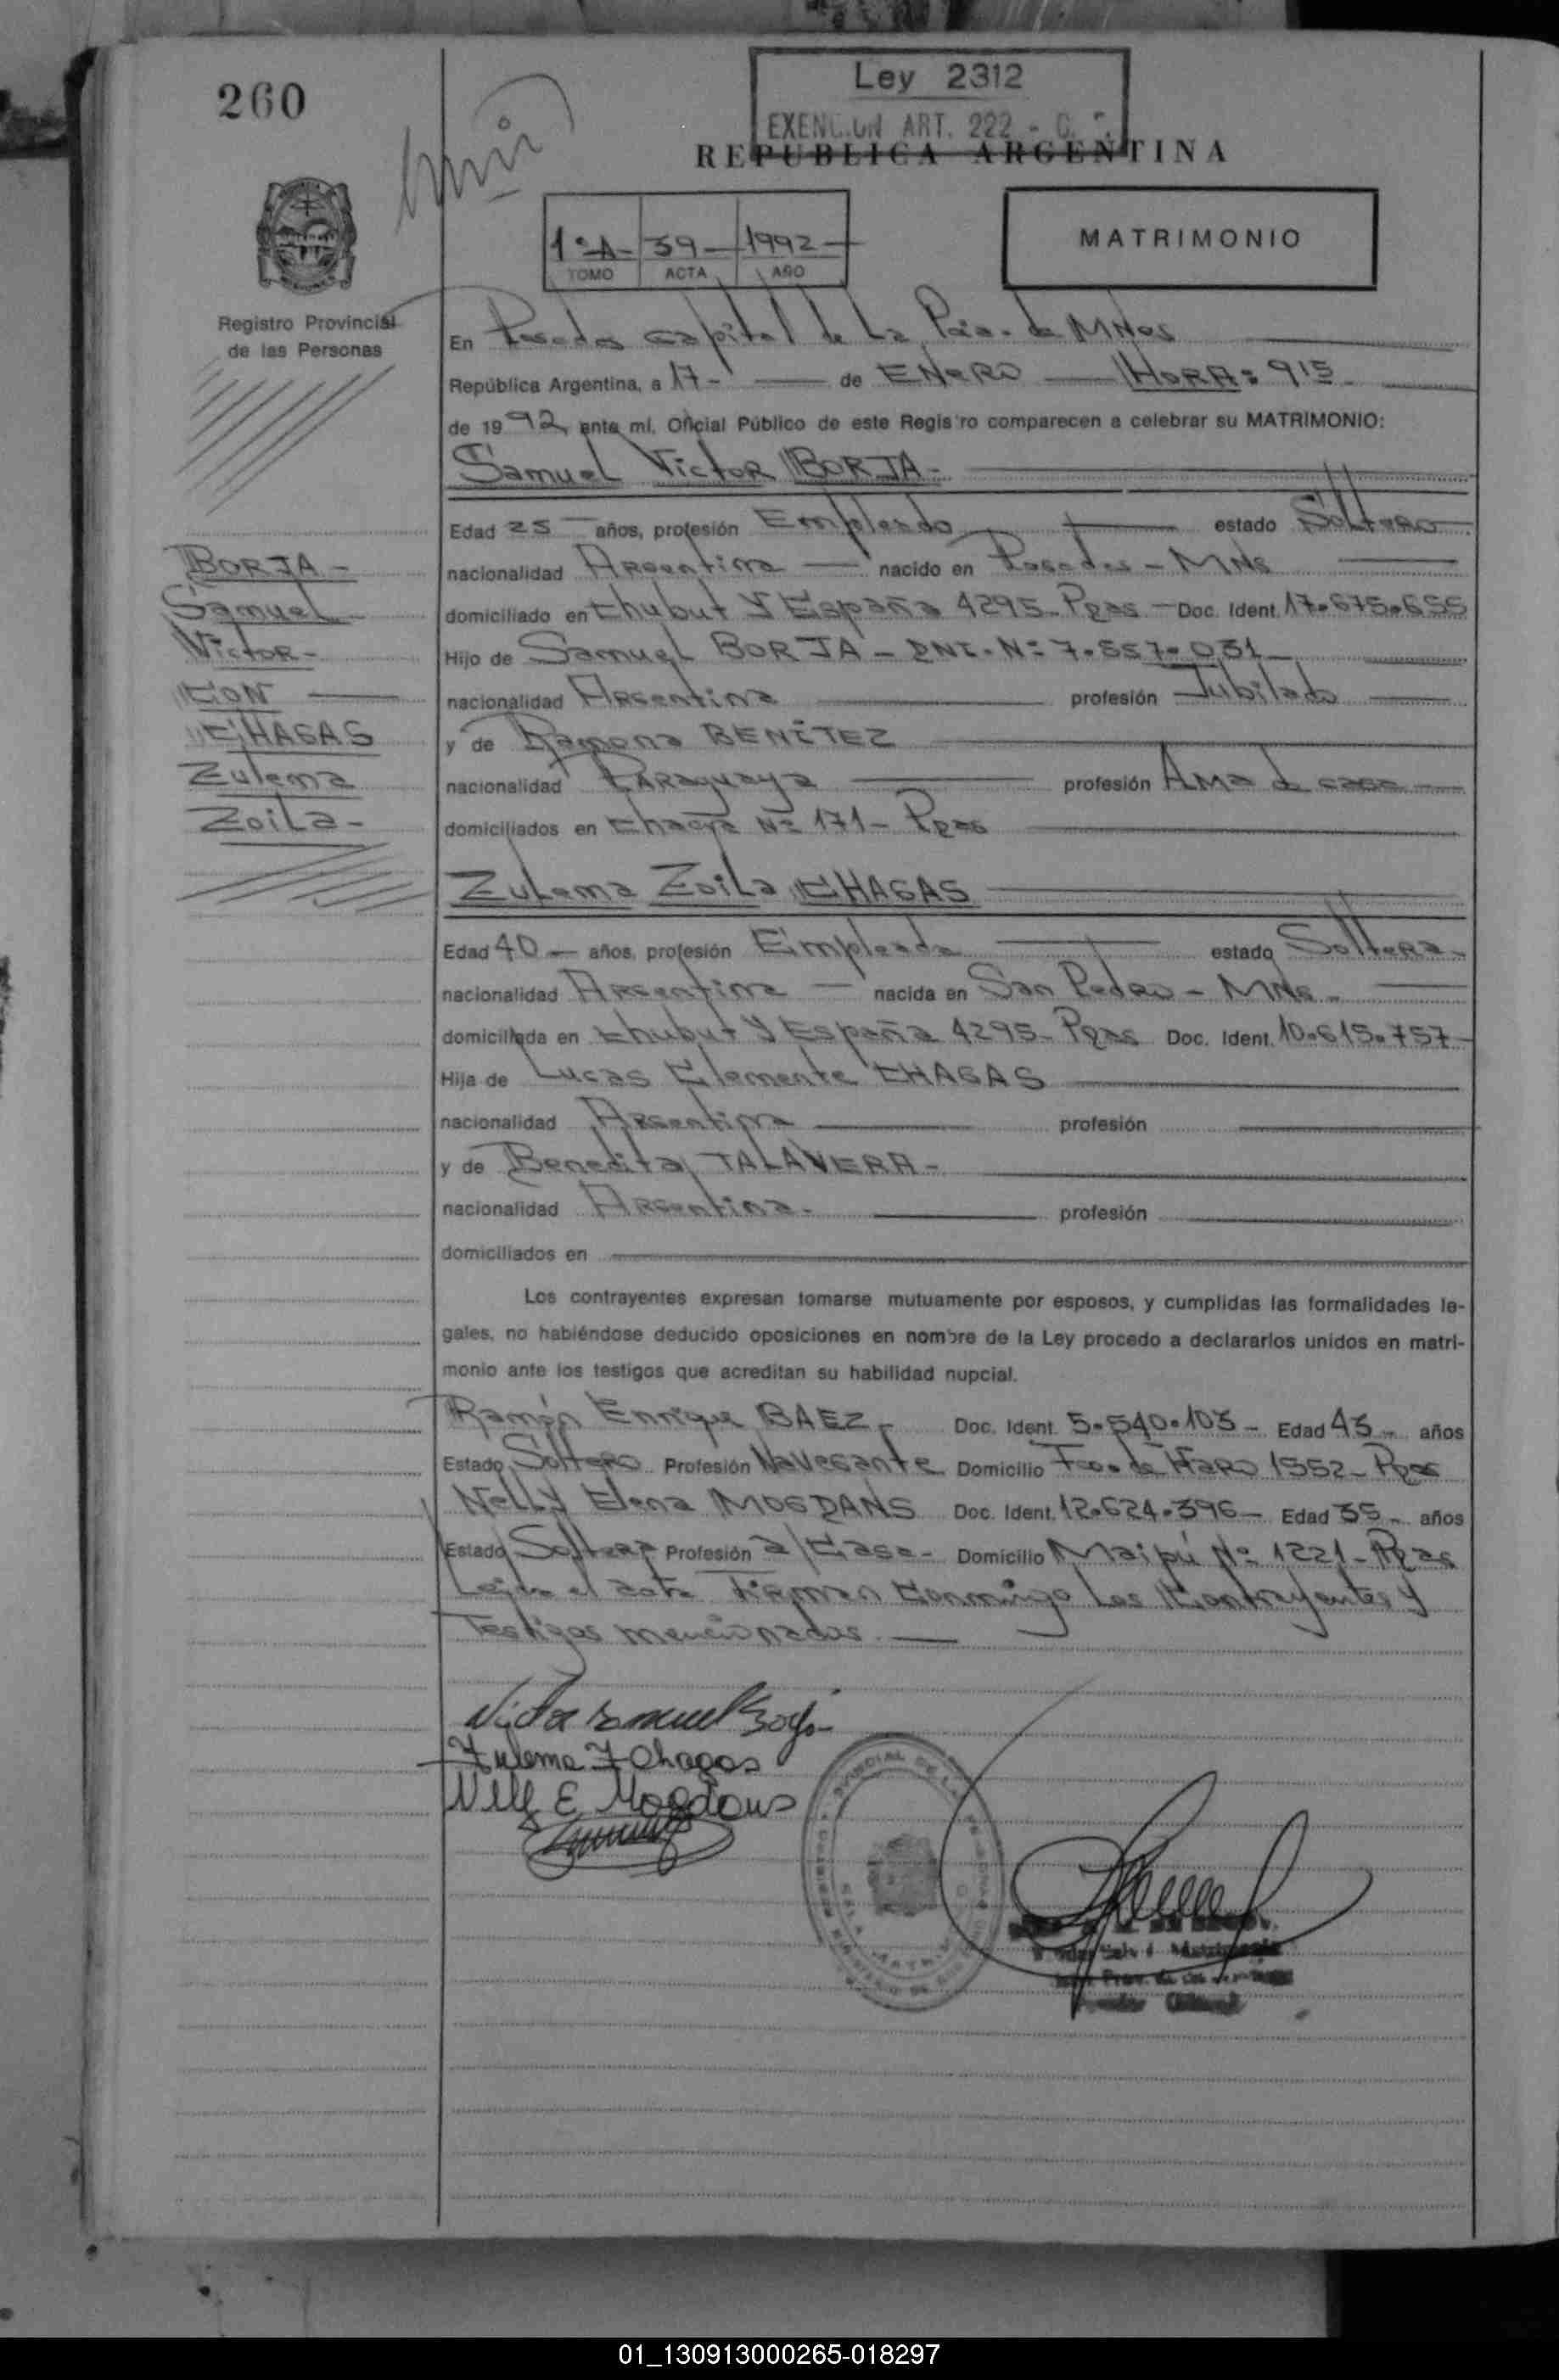 260
Ley 2312
EXENCION ART. 222 - C.
REPUBLICA ARGENTINA
1º A- 39- 1992-
TOMO ACTA AÑO
MATRIMONIO
Registro Provincial
de las Personas
BORJA -
Samuel
Victor -
CON
CHAGAS
Zulema
Zoila -
En Posadas capital de La Pcia. de MNes
República Argentina, a 17- de ENERO HORA: 915
de 1992, ante mí, Oficial Público de este Registro comparecen a celebrar su MATRIMONIO:
Samuel Victor BORJA -
Edad 25 años, profesión Empleado estado Soltero
nacionalidad Argentina nacido en Posadas - MNes
domiciliado en Chubut Y España 4295- Pdas - Doc. Ident. 17.675.655
Hijo de Samuel BORJA - DNI. Nº 7.557.031
nacionalidad Argentina profesión Jubilado
y de Ramona BENÍTEZ
nacionalidad Paraguaya profesión Ama de casa
domiciliados en Nº 171- Pdas
Zulema Zoila CHAGAS
Edad 40 - años, profesión Empleada estado Soltera -
nacionalidad Argentina nacida en San Pedro - MNes -
domiciliada en Chubut Y España 4295- Pdas Doc. Ident. 10.615.757
Hija de Lucas Clemente CHAGAS
nacionalidad Argentina profesión
y de Benedita TALAVERA -
nacionalidad Argentina. profesión
domiciliados en
Los contrayentes expresan tomarse mutuamente por esposos, y cumplidas las formalidades le-
gales, no habiéndose deducido oposiciones en nombre de la Ley procedo a declararlos unidos en matri-
monio ante los testigos que acreditan su habilidad nupcial.
Ramón Enrique BAEZ - Doc. Ident. 5.540.103 - Edad 43 - años
Estado Soltero Profesión Navegante Domicilio Fco. de HARO 1552- Pdas
Nelly Elena MOGDANS Doc. Ident. 12.624.396 - Edad 35 - años
Estado Soltera Profesión a/Casa - Domicilio Maipú Nº 1221- Pdas
Leída el acta Firman conmigo Los Contrayentes Y
Testigos mencionados.
Victor Samuel Borja
Zulema Z Chagas
Nelly E Mogdans
01_130913000265-018297